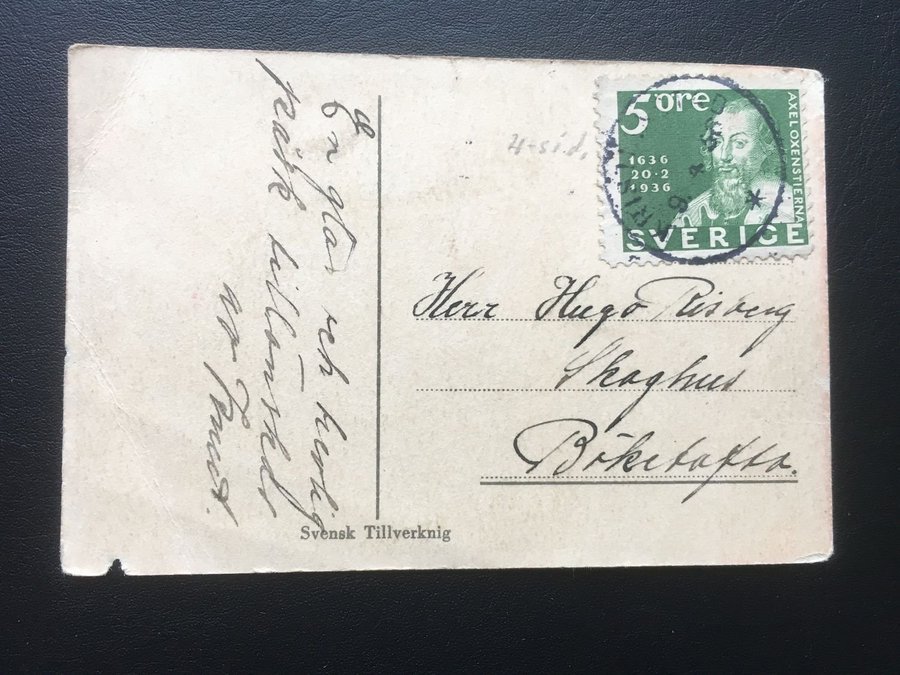 En glad och trevlig
påsk tillönskas
av Knut.
4-sid.
5 öre
1636
20·2
1936
AXEL OXENSTIERNA
SVERIGE
Herr Hugo Risberg
Skoghus
Böketofta.
Svensk Tillverknig